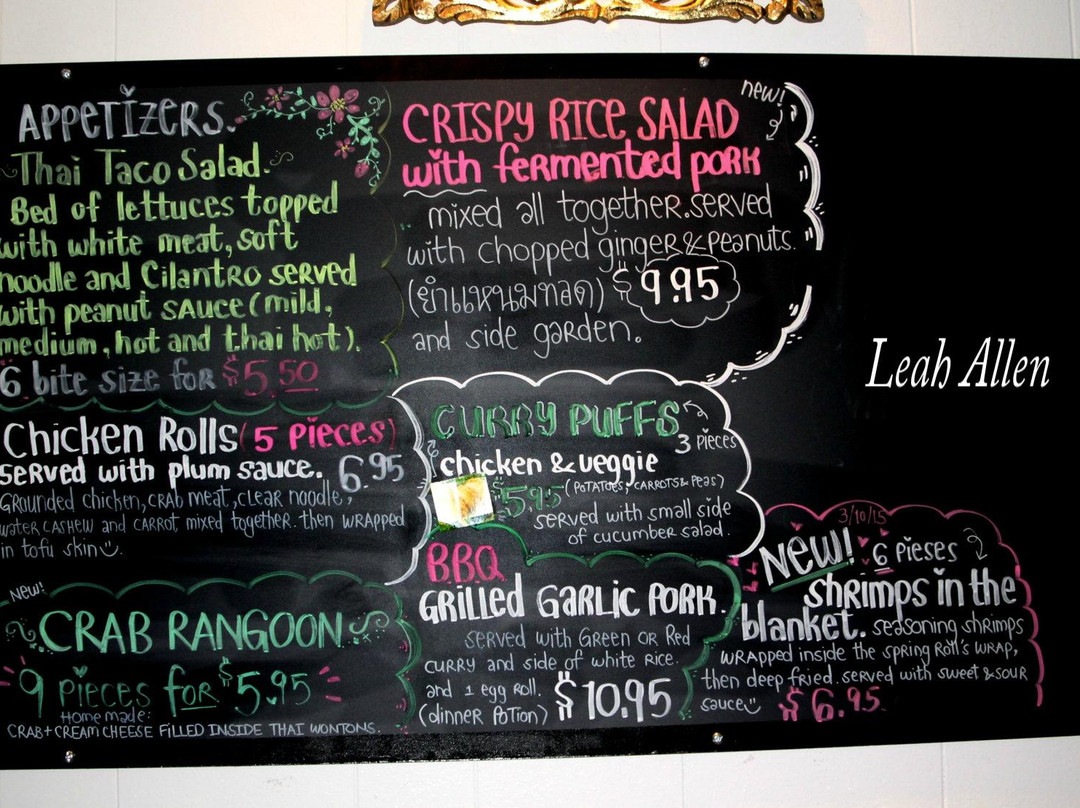 APPETIZERS.
Thai Taco Salad.
Bed of lettuces topped
with white meat, soft
noodle and Cilantro served
with peanut sauce (mild,
medium, hot and thai hot).
6 bite size for $5.50
Chicken Rolls (5 pieces)
served with plum sauce. 6.95
Grounded chicken, crab meat, clear noodle,
water cashew and carrot mixed together. then wrapped
in tofu skin
New!
CRAB RANGOON
9 pieces for $5.95
Home made:
CRAB + CREAM CHEESE FILLED INSIDE THAI WONTONS.
new!
CRISPY RICE SALAD
with fermented pork
mixed all together. served
with chopped ginger & peanuts.
(ยำแหนมทอด) $9.95
and side garden.
CURRY PUFFS
3 pieces
chicken & veggie
$5.95 (POTATOES, CARROTS & PEAS)
served with small side
of cucumber salad.
BBQ
GRILLED GARLIC PORK.
served with Green or Red
curry and side of white rice.
and 1 egg roll. $10.95
(dinner Potion)
Leah Allen
3/10/15
NEW! 6 pieses
shrimps in the
blanket. seasoning shrimps
wrapped inside the spring roll's wrap,
then deep fried. served with sweet & sour
sauce $6.95